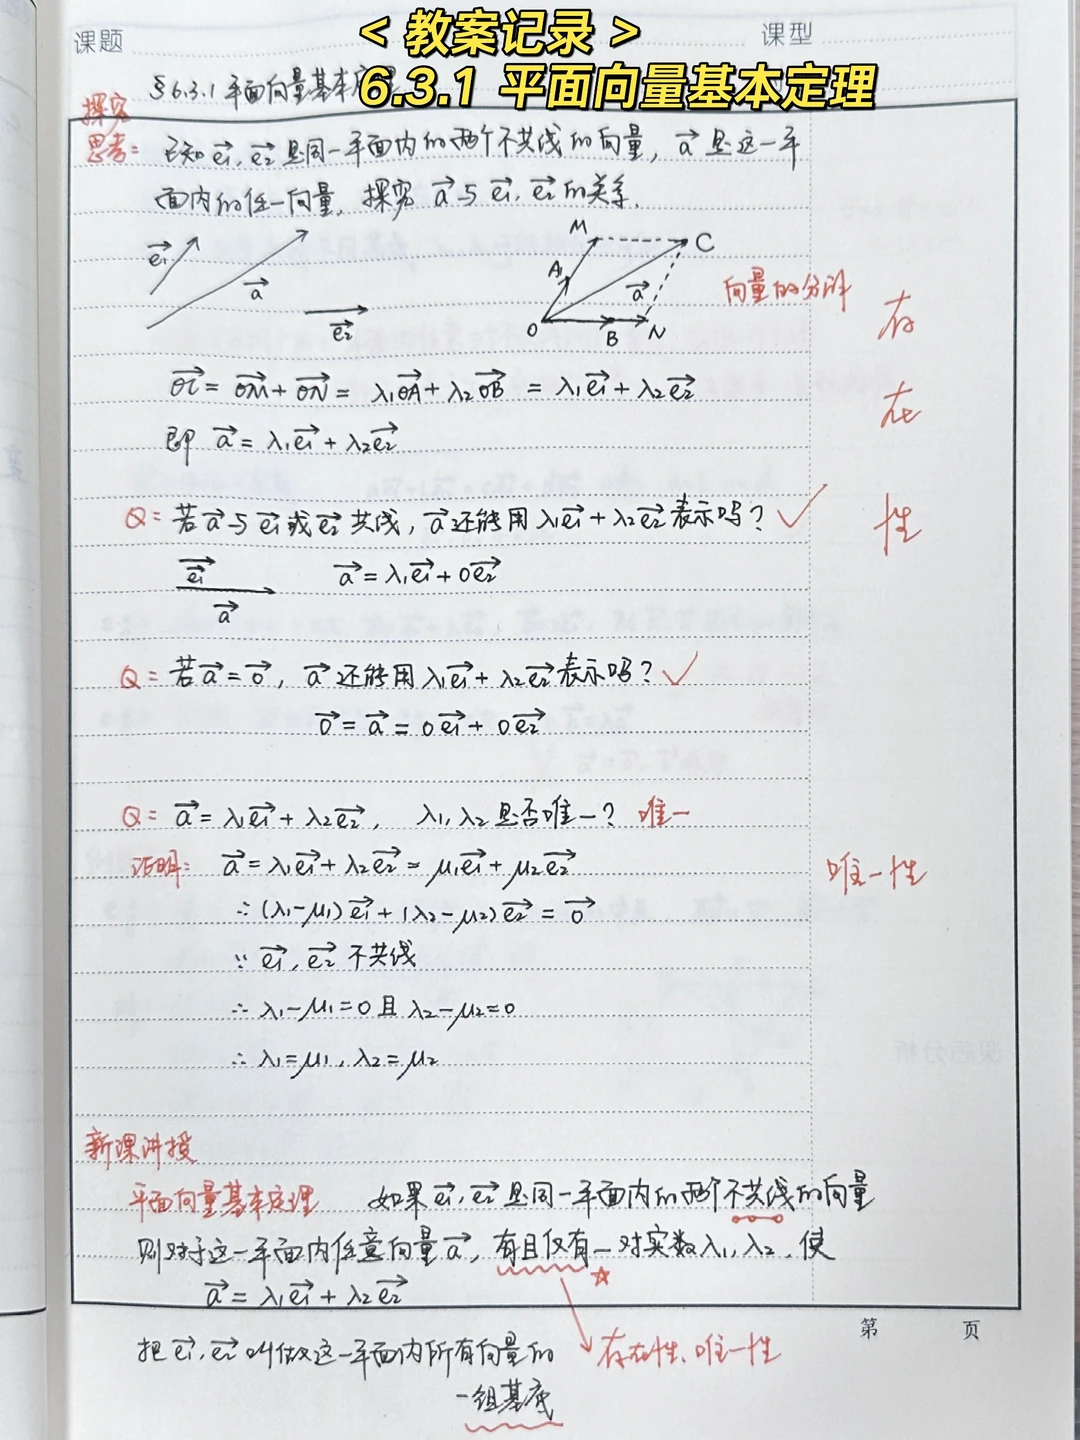 <教案记录>
6.3.1 平面向量基本定理
课题
课型
§6.3.1 平面向量基本定理
探究
思考: 已知e₁⃗, e₂⃗是同一平面内的两个不共线的向量, a⃗是这一平
面内的任一向量, 探究 a⃗与e₁⃗, e₂⃗的关系.
e₁⃗ a⃗ e₂⃗
M C A a⃗ O B N
向量的分解
OC⃗ = OM⃗ + ON⃗ = λ₁OA⃗ + λ₂OB⃗ = λ₁e₁⃗ + λ₂e₂⃗
即 a⃗ = λ₁e₁⃗ + λ₂e₂⃗
存
在
性
Q: 若a⃗与e₁⃗或e₂⃗共线, a⃗还能用λ₁e₁⃗ + λ₂e₂⃗表示吗? ✓
e₁⃗
a⃗
a⃗ = λ₁e₁⃗ + 0e₂⃗
Q: 若a⃗ = 0⃗, a⃗还能用λ₁e₁⃗ + λ₂e₂⃗表示吗? ✓
0⃗ = a⃗ = 0e₁⃗ + 0e₂⃗
Q: a⃗ = λ₁e₁⃗ + λ₂e₂⃗, λ₁, λ₂是否唯一? 唯一
证明: a⃗ = λ₁e₁⃗ + λ₂e₂⃗ = μ₁e₁⃗ + μ₂e₂⃗
唯一性
∴ (λ₁-μ₁)e₁⃗ + (λ₂-μ₂)e₂⃗ = 0⃗
∵ e₁⃗, e₂⃗ 不共线
∴ λ₁-μ₁=0 且 λ₂-μ₂=0
∴ λ₁=μ₁, λ₂=μ₂
新课讲授
平面向量基本定理 如果e₁⃗, e₂⃗是同一平面内的两个不共线的向量
则对于这一平面内任意向量a⃗, 有且仅有一对实数λ₁, λ₂, 使
a⃗ = λ₁e₁⃗ + λ₂e₂⃗
第 页
把e₁⃗, e₂⃗叫做这一平面内所有向量的
存在性、唯一性
一组基底